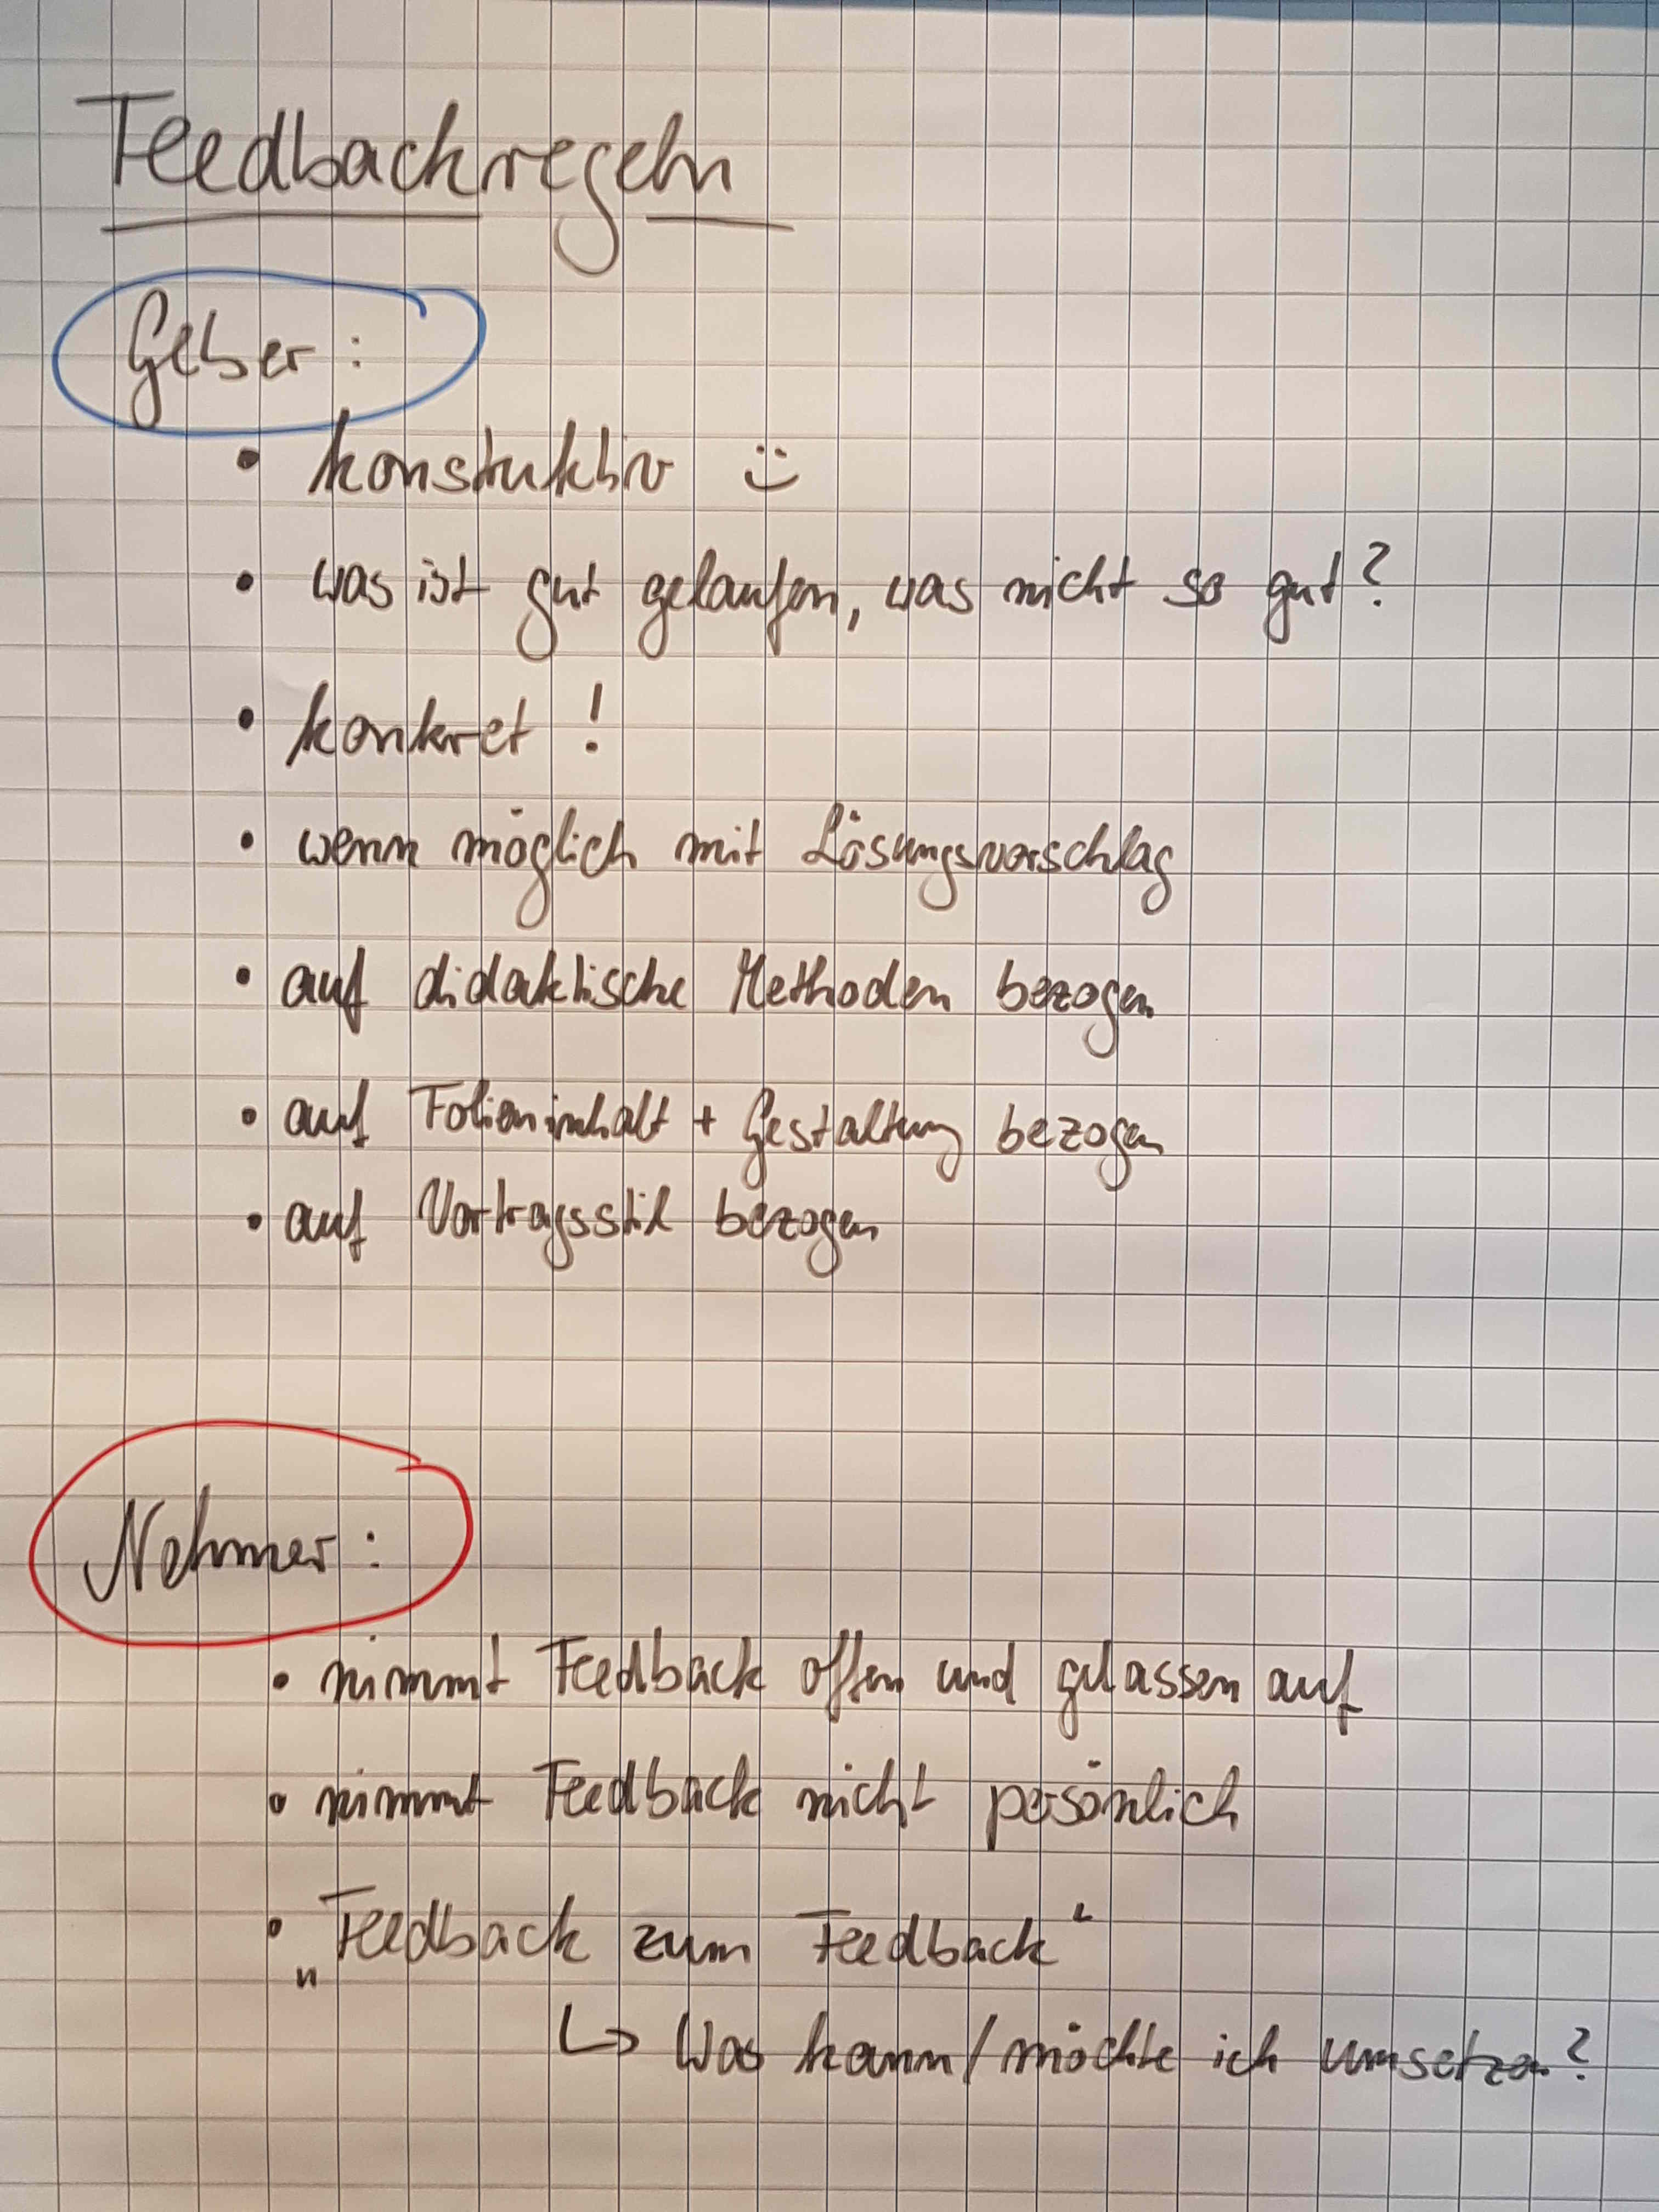 Feedbackregeln
Geber:
• konstuktiv :)
• was ist gut gelaufen, was nicht so gut?
• konkret!
• wenn möglich mit Lösungsvorschlag
• auf didaktische Methoden bezogen
• auf Folieninhalt + Gestaltung bezogen
• auf Vortragsstil bezogen
Nehmer:
• nimmt Feedback offen und gelassen auf
• nimmt Feedback nicht persönlich
• „Feedback zum Feedback“
↳ Was kann/möchte ich umsetzen?